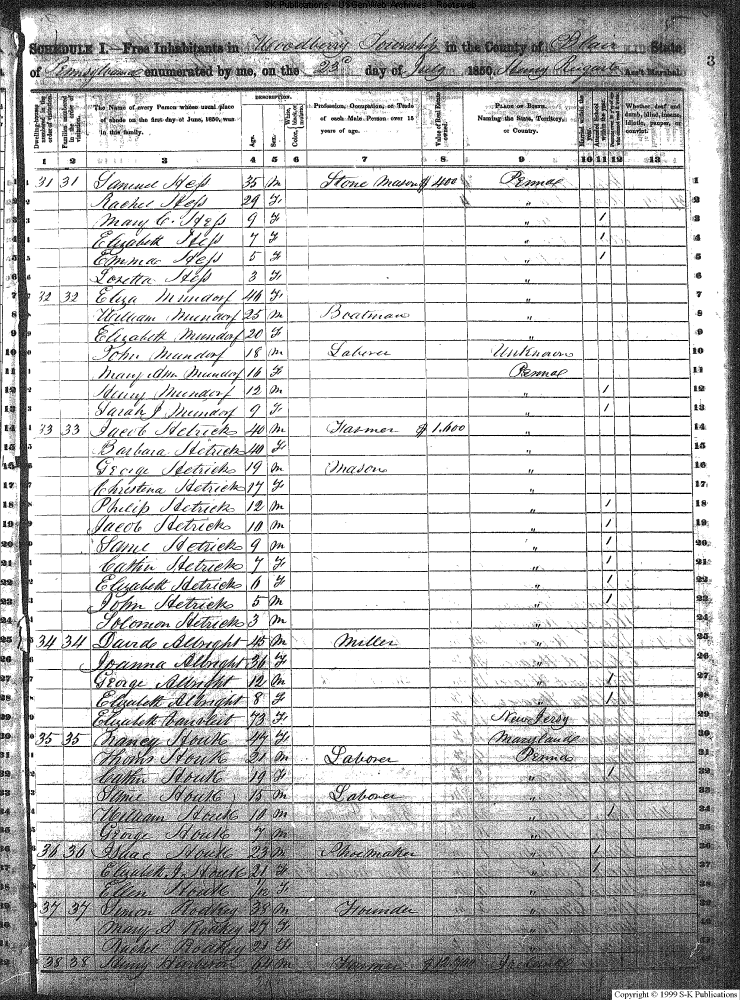 S-K Publications - USGenWeb Archives - Rootsweb
3
SCHEDULE I.—Free Inhabitants in Woodberry Township in the County of Blair State
of Pennsylvania enumerated by me, on the 23d day of July 1850. Henry Ass't Marshal.
Dwelling-houses numbered in the order of visitation.
Families numbered in the order of visitation.
The Name of every Person whose usual place of abode on the first day of June, 1850, was in this family.
DESCRIPTION.
Age.
Sex.
Color, White, black, or mulatto.
Profession, Occupation, or Trade of each Male Person over 15 years of age.
Value of Real Estate owned.
PLACE OF BIRTH. Naming the State, Territory, or Country.
Married within the year.
Attended School within the year.
Whether deaf and dumb, blind, insane, idiotic, pauper, or convict.
1 2 3 4 5 6 7 8 9 10 11 12 13
1 31 31 Samuel Hess 35 M Stone Mason $ 400 Penna 1
2 Rachel Hess 29 F " 2
3 Mary C. Hess 9 F " 1 3
4 Elizabeth Hess 7 F " 1 4
5 Emma Hess 5 F " 1 5
6 Lozetta Hess 3 F " 6
7 32 32 Eliza Mundorf 46 F " 7
8 William Mundorf 25 M Boatman " 8
9 Elizabeth Mundorf 20 F " 9
10 John Mundorf 18 M Laborer Unknown 10
11 Mary Ann Mundorf 16 F Penna 11
12 Henry Mundorf 12 M " 1 12
13 Sarah J Mundorf 9 F " 1 13
14 33 33 Jacob Hetrick 40 M Farmer $ 1,600 " 14
15 Barbara Hetrick 40 F " 15
16 George Hetrick 19 M Mason " 16
17 Christena Hetrick 17 F " 17
18 Philip Hetrick 12 M " 1 18
19 Jacob Hetrick 10 M " 1 19
20 Saml Hetrick 9 M " 1 20
21 Cathn Hetrick 7 F " 1 21
22 Elizabeth Hetrick 6 F " 1 22
23 John Hetrick 5 M " 1 23
24 Solomon Hetrick 3 M " 24
25 34 34 David Albright 45 M Miller " 25
26 Joanna Albright 36 F " 26
27 George Albright 12 M " 1 27
28 Elizabeth Albright 8 F " 1 28
29 Elizabeth 73 F New Jersy 29
30 35 35 Nancy Houk 44 F Maryland 30
31 Thoms Houk 21 M Laborer Penna 31
32 Cathn Houk 19 F " 1 32
33 Saml Houk 15 M Laborer " 33
34 William Houk 10 M " 1 34
35 George Houk 7 M " 35
36 36 36 Isaac Houk 23 M Shoemaker " 1 36
37 Elizabeth J. Houk 21 F " 1 37
38 Ellen Houk F " 38
39 37 37 Simon Rodkey 38 M Founder " 39
40 Mary A Rodkey 27 F " 40
41 Rachel Rodkey 21 F " 41
42 38 38 Henry 64 M Farmer 42
Copyright © 1999 S-K Publications